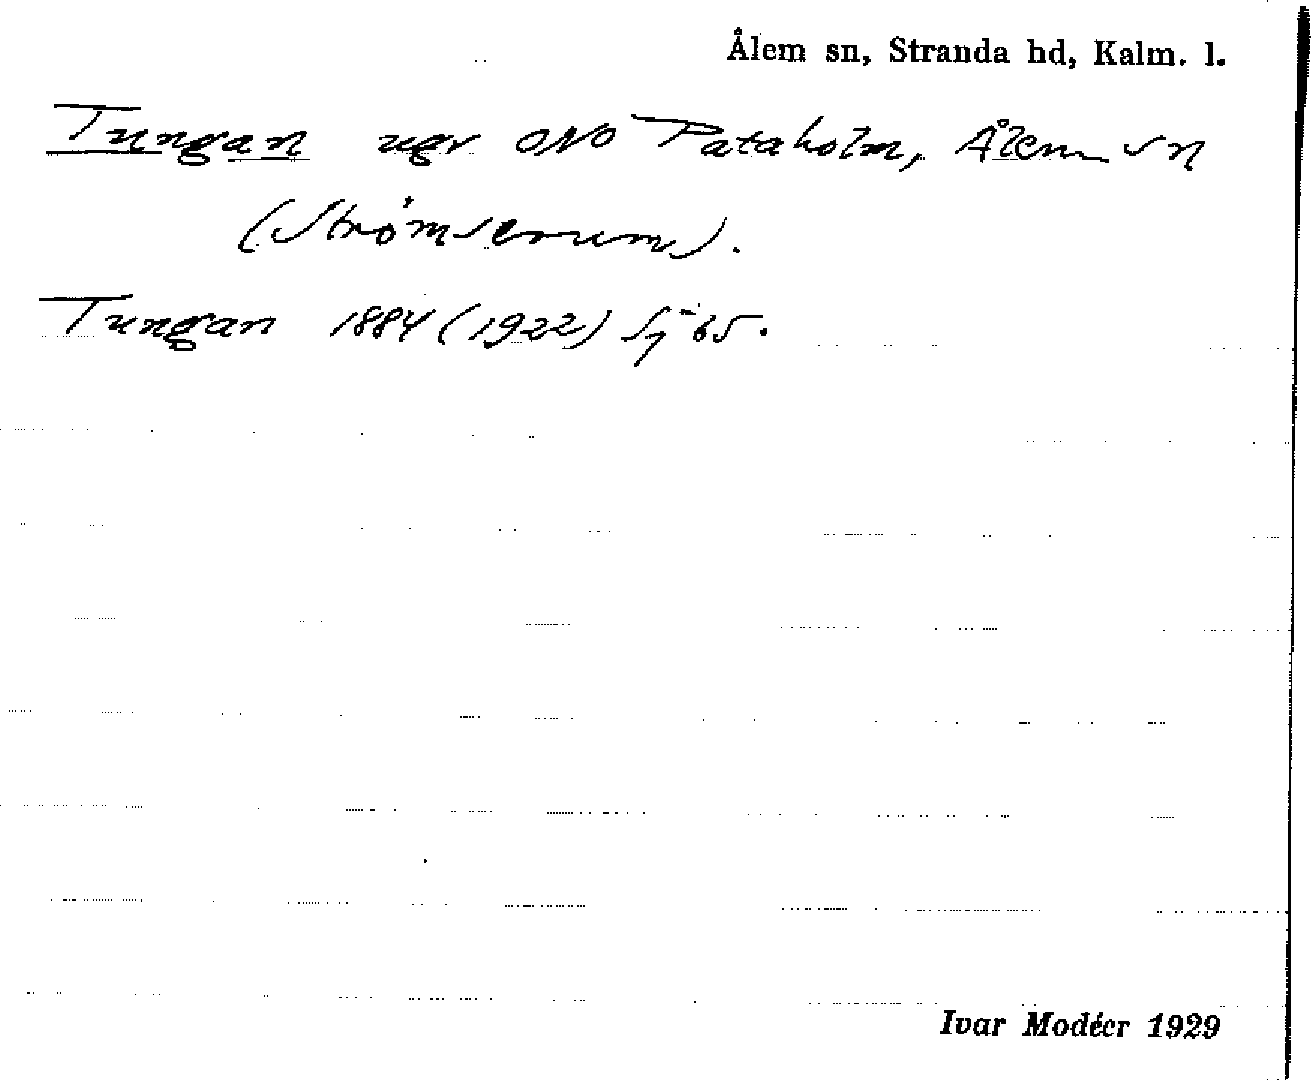 Ålem sn, Stranda hd, Kalm. l.
Tungan ugr ONO Pataholm, Ålem sn
(Strömserum).
Tungan 1884 (1922) Sj 65.
Ivar Modéer 1929